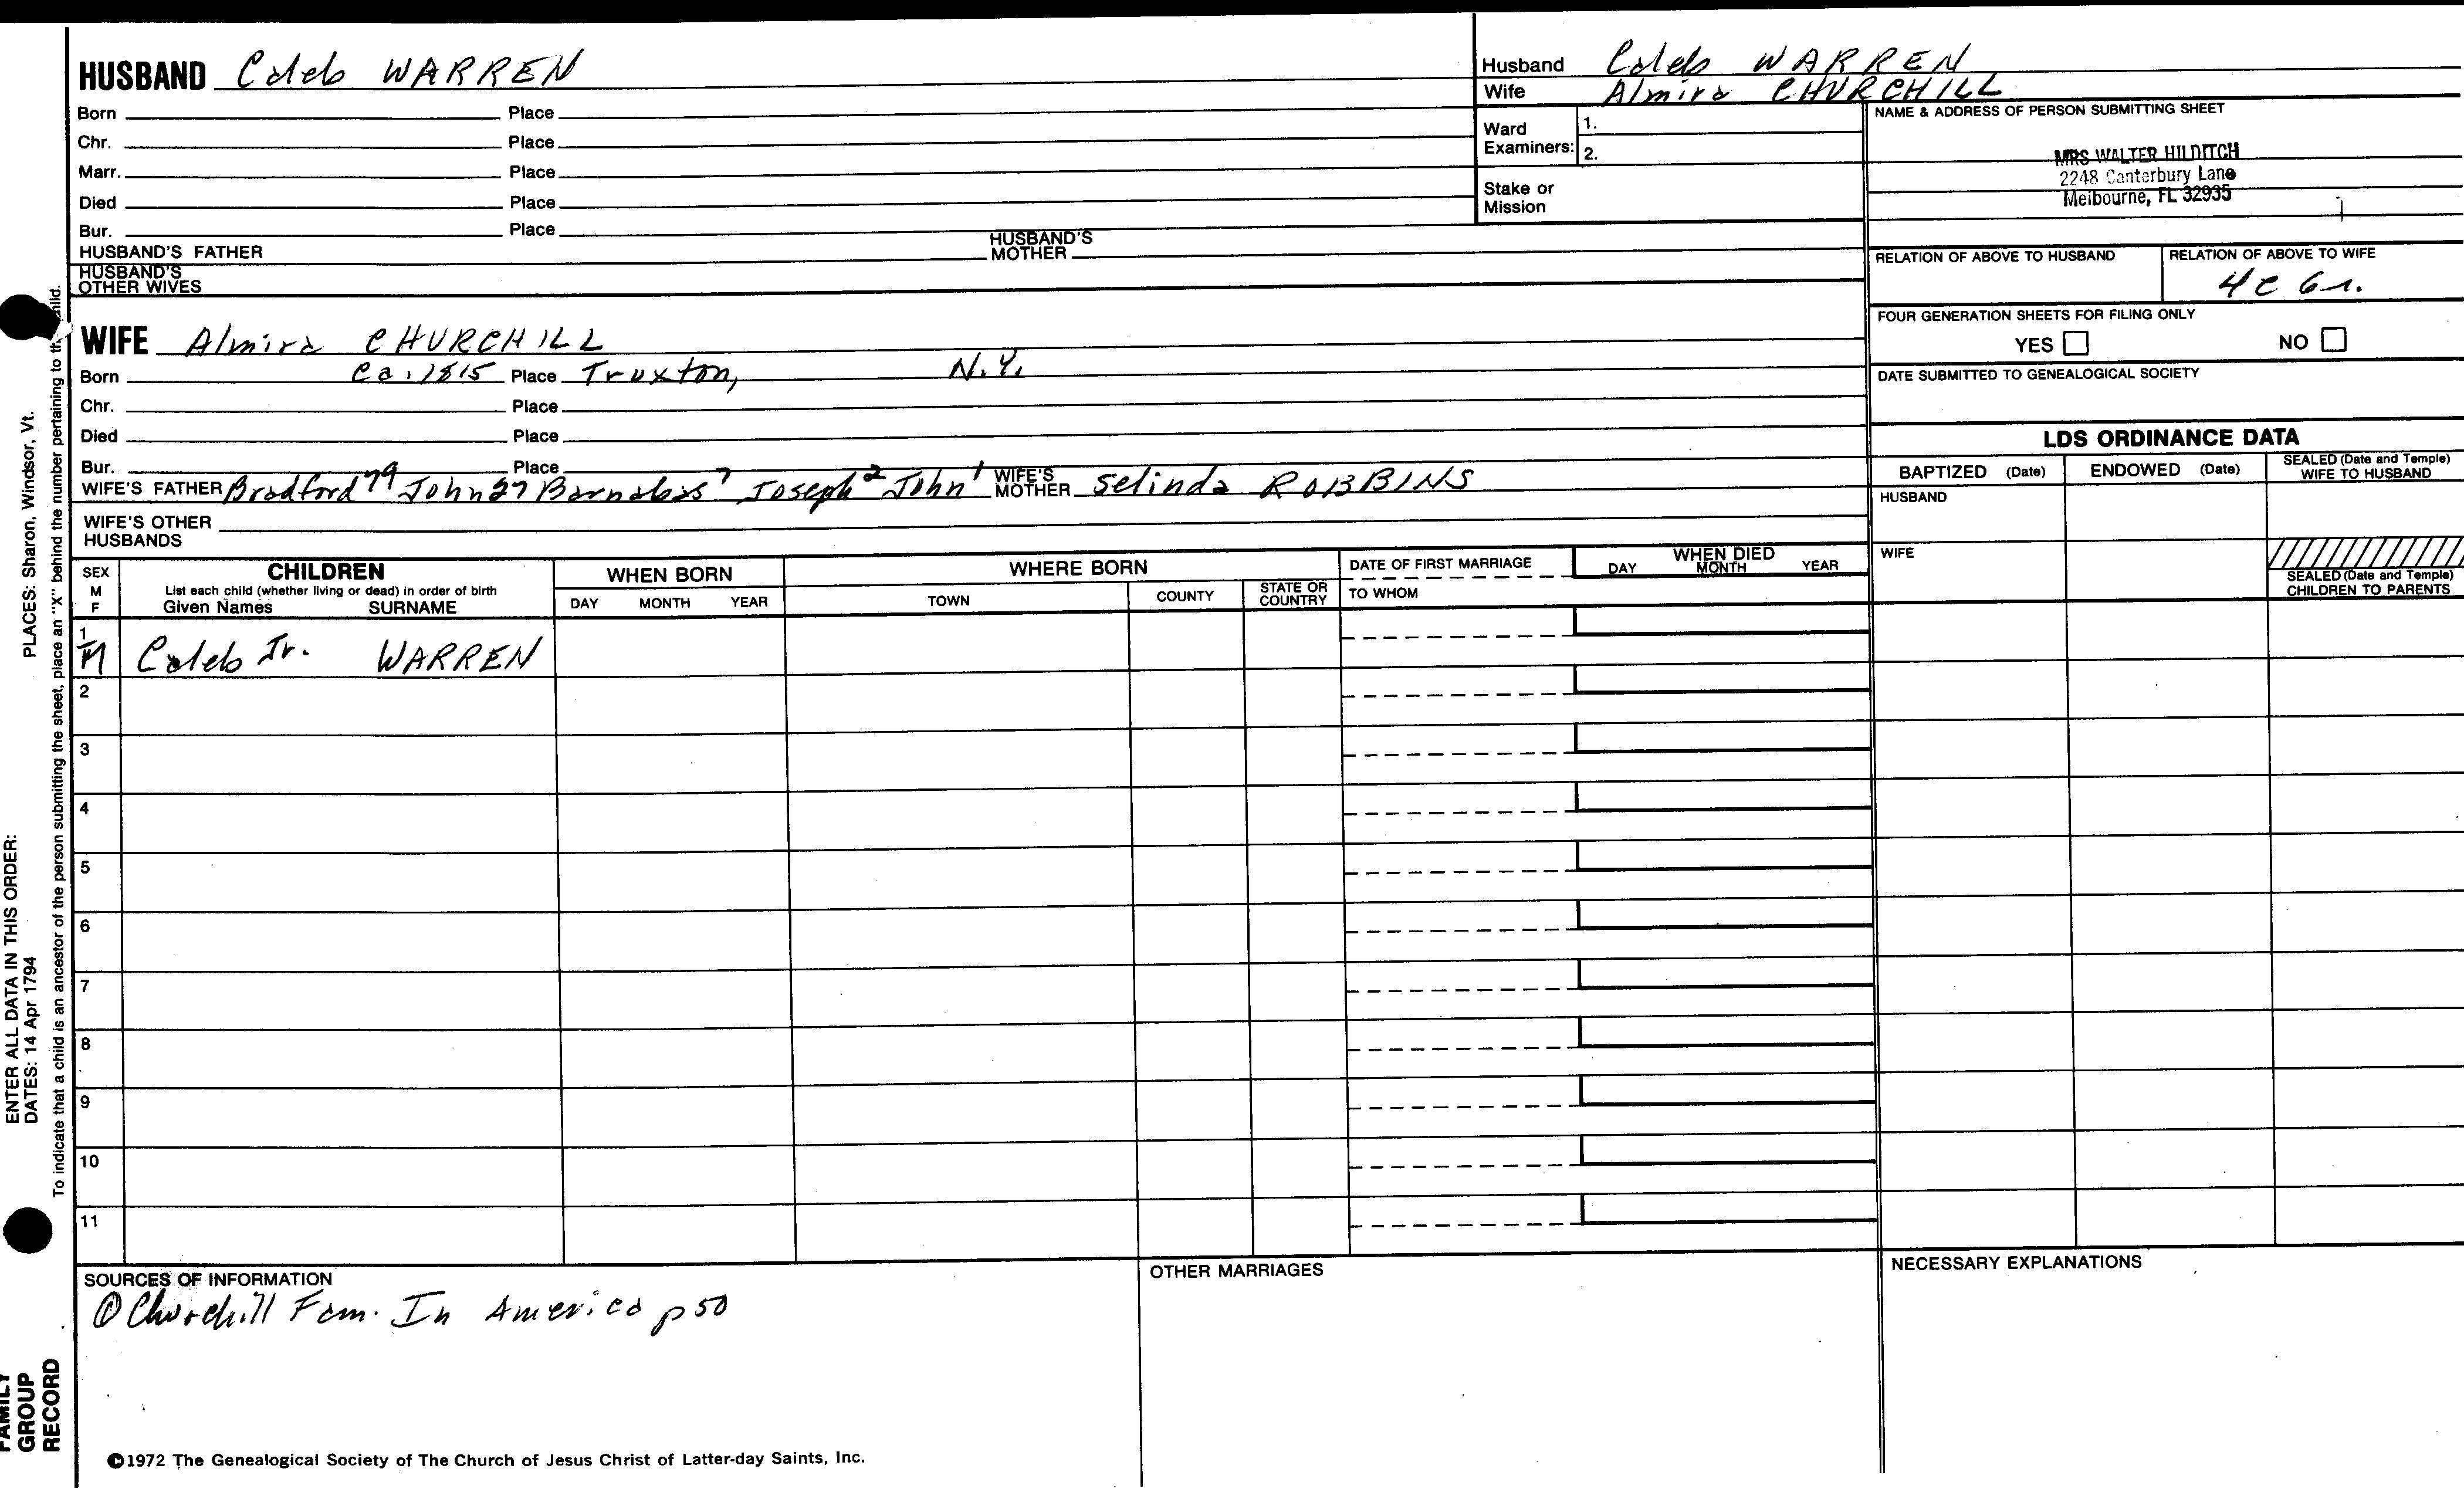 HUSBAND Caleb WARREN
Born Place
Chr. Place
Marr. Place
Died Place
Bur. Place
HUSBAND'S FATHER HUSBAND'S MOTHER
HUSBAND'S OTHER WIVES
Husband Caleb WARREN
Wife Almira CHURCHILL
Ward Examiners: 1.
2.
Stake or Mission
NAME & ADDRESS OF PERSON SUBMITTING SHEET
MRS WALTER HILDITCH
2248 Canterbury Lane
Melbourne, FL 32935
RELATION OF ABOVE TO HUSBAND
RELATION OF ABOVE TO WIFE
4c 6r.
FOUR GENERATION SHEETS FOR FILING ONLY
YES NO
DATE SUBMITTED TO GENEALOGICAL SOCIETY
WIFE Almira CHURCHILL
Born Ca. 1815 Place Truxton, N.Y.
Chr. Place
Died Place
Bur. Place
WIFE'S FATHER Bradford 79 John 27 Barnabas 7 Joseph 2 John 1 WIFE'S MOTHER Selinda ROBBINS
WIFE'S OTHER HUSBANDS
LDS ORDINANCE DATA
BAPTIZED (Date) ENDOWED (Date) SEALED (Date and Temple) WIFE TO HUSBAND
HUSBAND
WIFE
SEALED (Date and Temple) CHILDREN TO PARENTS
SEX M F
CHILDREN
List each child (whether living or dead) in order of birth
Given Names SURNAME
WHEN BORN
DAY MONTH YEAR
WHERE BORN
TOWN COUNTY STATE OR COUNTRY
DATE OF FIRST MARRIAGE
TO WHOM
WHEN DIED
DAY MONTH YEAR
1 M Caleb Jr. WARREN
2
3
4
5
6
7
8
9
10
11
SOURCES OF INFORMATION
① Churchill Fam. In America p 50
OTHER MARRIAGES
NECESSARY EXPLANATIONS
©1972 The Genealogical Society of The Church of Jesus Christ of Latter-day Saints, Inc.
ENTER ALL DATA IN THIS ORDER:
DATES: 14 Apr 1794 PLACES: Sharon, Windsor, Vt.
To indicate that a child is an ancestor of the person submitting the sheet, place an "X" behind the number pertaining to the child.
FAMILY
GROUP
RECORD